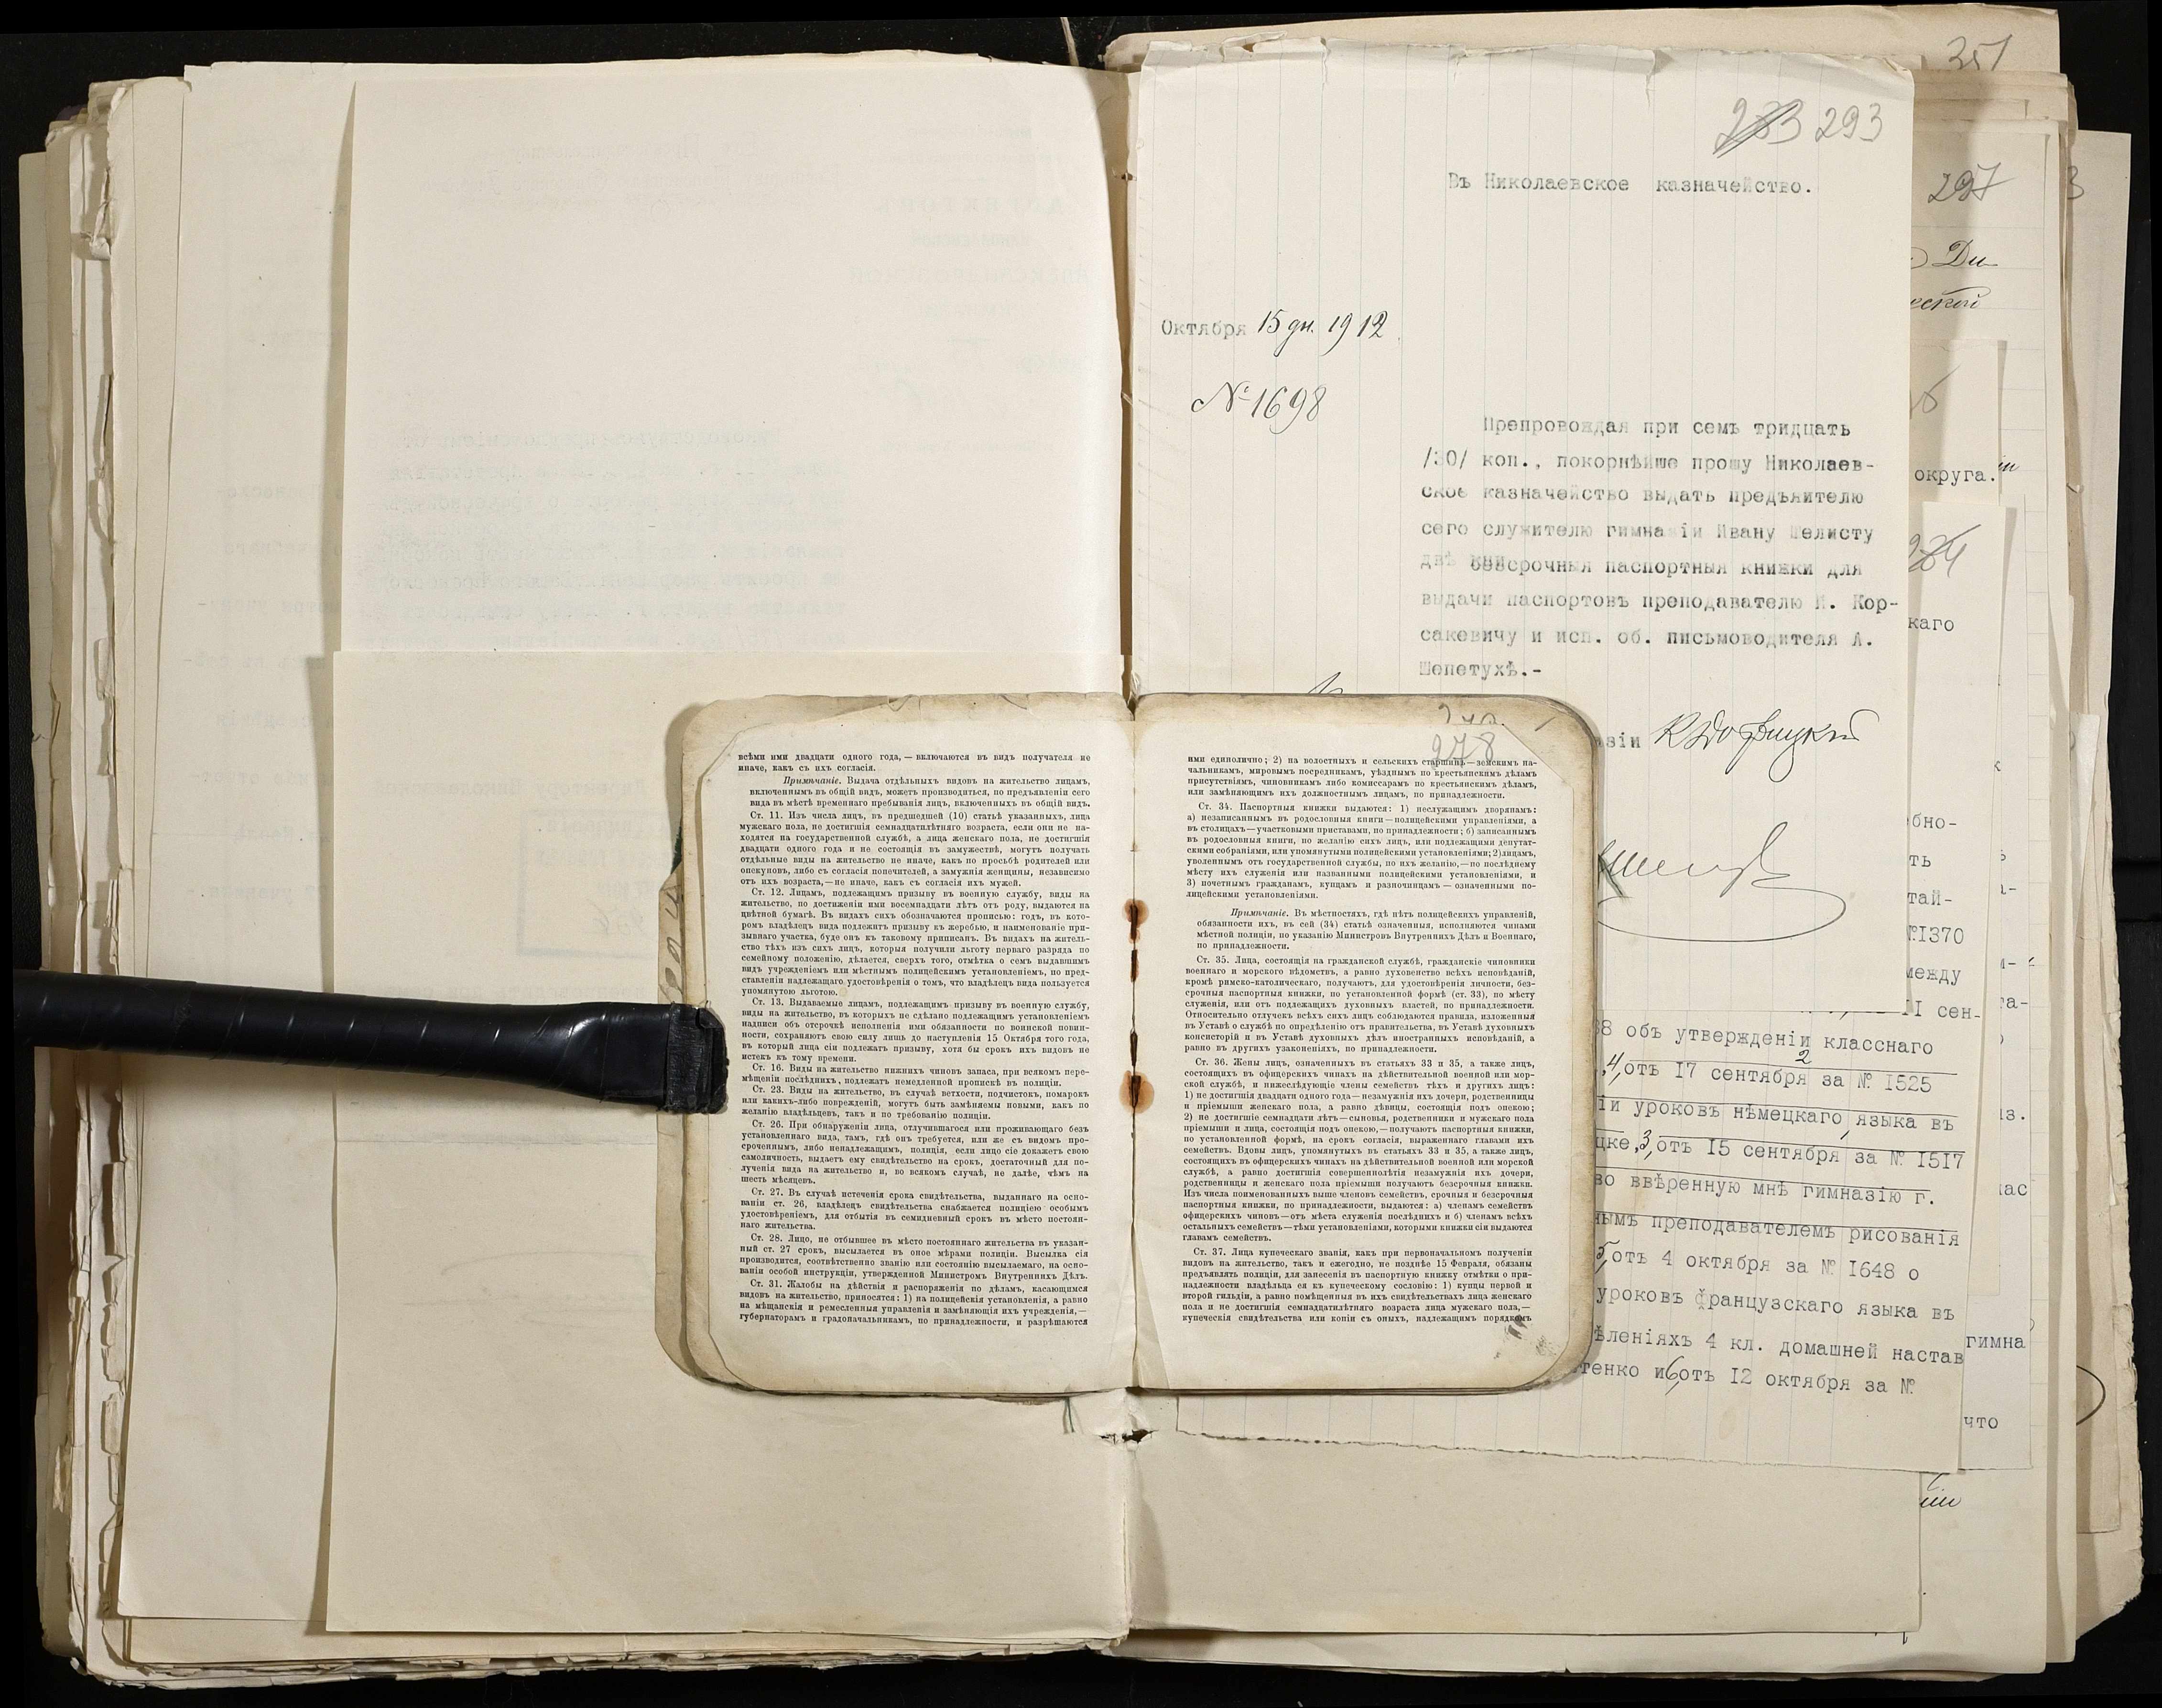 351
293
Въ Николаевское казначейство.
Октября 15 дн. 1912
№ 1698
Препровождая при семъ тридцать
/30/ коп., покорнѣйше прошу Николаев-
ское казначейство выдать предъявителю
сего служителю гимназіи Ивану Шелисту
двѣ безсрочныя паспортныя книжки для
выдачи паспортовъ преподавателю И. Кор-
сакевичу и исп. об. письмоводителя А.
Шепетухѣ.-
278
всѣми ими двадцати одного года, — включаются въ видъ получателя не
иначе, какъ съ ихъ согласія.
Примѣчаніе. Выдача отдѣльныхъ видовъ на жительство лицамъ,
включеннымъ въ общій видъ, можетъ производиться, по предъявленіи сего
вида въ мѣстѣ временнаго пребыванія лицъ, включенныхъ въ общій видъ.
Ст. 11. Изъ числа лицъ, въ предшедшей (10) статьѣ указанныхъ, лица
мужскаго пола, не достигшія семнадцатилѣтняго возраста, если они не на-
ходятся на государственной службѣ, а лица женскаго пола, не достигшія
двадцати одного года и не состоящія въ замужествѣ, могутъ получать
отдѣльные виды на жительство не иначе, какъ по просьбѣ родителей или
опекуновъ, либо съ согласія попечителей, а замужнія женщины, независимо
отъ ихъ возраста,—не иначе, какъ съ согласія ихъ мужей.
Ст. 12. Лицамъ, подлежащимъ призыву въ военную службу, виды на
жительство, по достиженіи ими восемнадцати лѣтъ отъ роду, выдаются на
цвѣтной бумагѣ. Въ видахъ сихъ обозначаются прописью: годъ, въ кото-
ромъ владѣлецъ вида подлежитъ призыву къ жеребью, и наименованіе при-
зывнаго участка, буде онъ къ таковому приписанъ. Въ видахъ на житель-
ство тѣхъ изъ сихъ лицъ, которыя получили льготу перваго разряда по
семейному положенію, дѣлается, сверхъ того, отмѣтка о семъ выдавшимъ
видъ учрежденіемъ или мѣстнымъ полицейскимъ установленіемъ, по пред-
ставленіи надлежащаго удостовѣренія о томъ, что владѣлецъ вида пользуется
упомянутою льготою.
Ст. 13. Выдаваемые лицамъ, подлежащимъ призыву въ военную службу,
виды на жительство, въ которыхъ не сдѣлано подлежащимъ установленіемъ
надписи объ отсрочкѣ исполненія ими обязанности по воинской повин-
ности, сохраняютъ свою силу лишь до наступленія 15 Октября того года,
въ который лица сіи подлежатъ призыву, хотя бы срокъ ихъ видовъ не
истекъ къ тому времени.
Ст. 16. Виды на жительство нижнихъ чиновъ запаса, при всякомъ пере-
мѣщеніи послѣднихъ, подлежатъ немедленной пропискѣ въ полиціи.
Ст. 23. Виды на жительство, въ случаѣ ветхости, подчистокъ, помарокъ
или какихъ-либо поврежденій, могутъ быть замѣняемы новыми, какъ по
желанію владѣльцевъ, такъ и по требованію полиціи.
Ст. 26. При обнаруженіи лица, отлучившагося или проживающаго безъ
установленнаго вида, тамъ, гдѣ онъ требуется, или же съ видомъ про-
сроченнымъ, либо ненадлежащимъ, полиція, если лицо сіе докажетъ свою
самоличность, выдаетъ ему свидѣтельство на срокъ, достаточный для по-
лученія вида на жительство и, во всякомъ случаѣ, не далѣе, чѣмъ на
шесть мѣсяцевъ.
Ст. 27. Въ случаѣ истеченія срока свидѣтельства, выданнаго на осно-
ваніи ст. 26, владѣлецъ свидѣтельства снабжается полиціею особымъ
удостовѣреніемъ, для отбытія въ семидневный срокъ въ мѣсто постоян-
наго жительства.
Ст. 28. Лицо, не отбывшее въ мѣсто постояннаго жительства въ указан-
ный ст. 27 срокъ, высылается въ оное мѣрами полиціи. Высылка сія
производится, соотвѣтственно званію или состоянію высылаемаго, на осно-
ваніи особой инструкціи, утвержденной Министромъ Внутреннихъ Дѣлъ.
Ст. 31. Жалобы на дѣйствія и распоряженія по дѣламъ, касающимся
видовъ на жительство, приносятся: 1) на полицейскія установленія, а равно
на мѣщанскія и ремесленныя управленія и замѣняющія ихъ учрежденія,—
губернаторамъ и градоначальникамъ, по принадлежности, и разрѣшаются
ими единолично; 2) на волостныхъ и сельскихъ старшинъ—земскимъ на-
чальникамъ, мировымъ посредникамъ, уѣзднымъ по крестьянскимъ дѣламъ
присутствіямъ, чиновникамъ либо комиссарамъ по крестьянскимъ дѣламъ,
или замѣняющимъ ихъ должностнымъ лицамъ, по принадлежности.
Ст. 34. Паспортныя книжки выдаются: 1) неслужащимъ дворянамъ:
а) незаписаннымъ въ родословныя книги—полицейскими управленіями, а
въ столицахъ—участковыми приставами, по принадлежности; б) записаннымъ
въ родословныя книги, по желанію сихъ лицъ, или подлежащими депутат-
скими собраніями, или упомянутыми полицейскими установленіями; 2) лицамъ,
уволеннымъ отъ государственной службы, по ихъ желанію,—по послѣднему
мѣсту ихъ служенія или названными полицейскими установленіями, и
3) почетнымъ гражданамъ, купцамъ и разночинцамъ — означенными по-
лицейскими установленіями.
Примѣчаніе. Въ мѣстностяхъ, гдѣ нѣтъ полицейскихъ управленій,
обязанности ихъ, въ сей (34) статьѣ означенныя, исполняются чинами
мѣстной полиціи, по указанію Министровъ Внутреннихъ Дѣлъ и Военнаго,
по принадлежности.
Ст. 35. Лица, состоящія на гражданской службѣ, гражданскіе чиновники
военнаго и морского вѣдомствъ, а равно духовенство всѣхъ исповѣданій,
кромѣ римско-католическаго, получаютъ, для удостовѣренія личности, без-
срочныя паспортныя книжки, по установленной формѣ (ст. 33), по мѣсту
служенія, или отъ подлежащихъ духовныхъ властей, по принадлежности.
Относительно отлучекъ всѣхъ сихъ лицъ соблюдаются правила, изложенныя
въ Уставѣ о службѣ по опредѣленію отъ правительства, въ Уставѣ духовныхъ
консисторій и въ Уставѣ духовныхъ дѣлъ иностранныхъ исповѣданій, а
равно въ другихъ узаконеніяхъ, по принадлежности.
Ст. 36. Жены лицъ, означенныхъ въ статьяхъ 33 и 35, а также лицъ,
состоящихъ въ офицерскихъ чинахъ на дѣйствительной военной или мор-
ской службѣ, и нижеслѣдующіе члены семействъ тѣхъ и другихъ лицъ:
1) не достигшія двадцати одного года—незамужнія ихъ дочери, родственницы
и пріемыши женскаго пола, а равно дѣвицы, состоящія подъ опекою;
2) не достигшіе семнадцати лѣтъ—сыновья, родственники и мужскаго пола
пріемыши и лица, состоящія подъ опекою,—получаютъ паспортныя книжки,
по установленной формѣ, на срокъ согласія, выраженнаго главами ихъ
семействъ. Вдовы лицъ, упомянутыхъ въ статьяхъ 33 и 35, а также лицъ,
состоящихъ въ офицерскихъ чинахъ на дѣйствительной военной или морской
службѣ, а равно достигшія совершеннолѣтія незамужнія ихъ дочери,
родственницы и женскаго пола пріемыши получаютъ безсрочныя книжки.
Изъ числа поименованныхъ выше членовъ семействъ, срочныя и безсрочныя
паспортныя книжки, по принадлежности, выдаются: а) членамъ семействъ
офицерскихъ чиновъ—отъ мѣста служенія послѣднихъ и б) членамъ всѣхъ
остальныхъ семействъ—тѣми установленіями, которыми книжки сіи выдаются
главамъ семействъ.
Ст. 37. Лица купеческаго званія, какъ при первоначальномъ полученіи
видовъ на жительство, такъ и ежегодно, не позднѣе 15 Февраля, обязаны
предъявлять полиціи, для занесенія въ паспортную книжку отмѣтки о при-
надлежности владѣльца ея къ купеческому сословію: 1) купцы первой и
второй гильдіи, а равно помѣщенныя въ ихъ свидѣтельствахъ лица женскаго
пола и не достигшія семнадцатилѣтняго возраста лица мужскаго пола,—
купеческія свидѣтельства или копіи съ оныхъ, надлежащимъ порядкомъ
зіи
297
Ди-
еской
округа.
284
каго
бно-
ть
тай-
№1370
между
11 сен-
8 объ утвержденіи класснаго
4, отъ 17 сентября за № 1525
2
іи уроковъ нѣмецкаго языка въ
цке, 3, отъ 15 сентября за № 1517
во ввѣренную мнѣ гимназію г.
нымъ преподавателемъ рисованія
5, отъ 4 октября за № 1648 о
уроковъ французскаго языка въ
ѣленіяхъ 4 кл. домашней настав
тенко и 6, отъ 12 октября за №
гимна
что